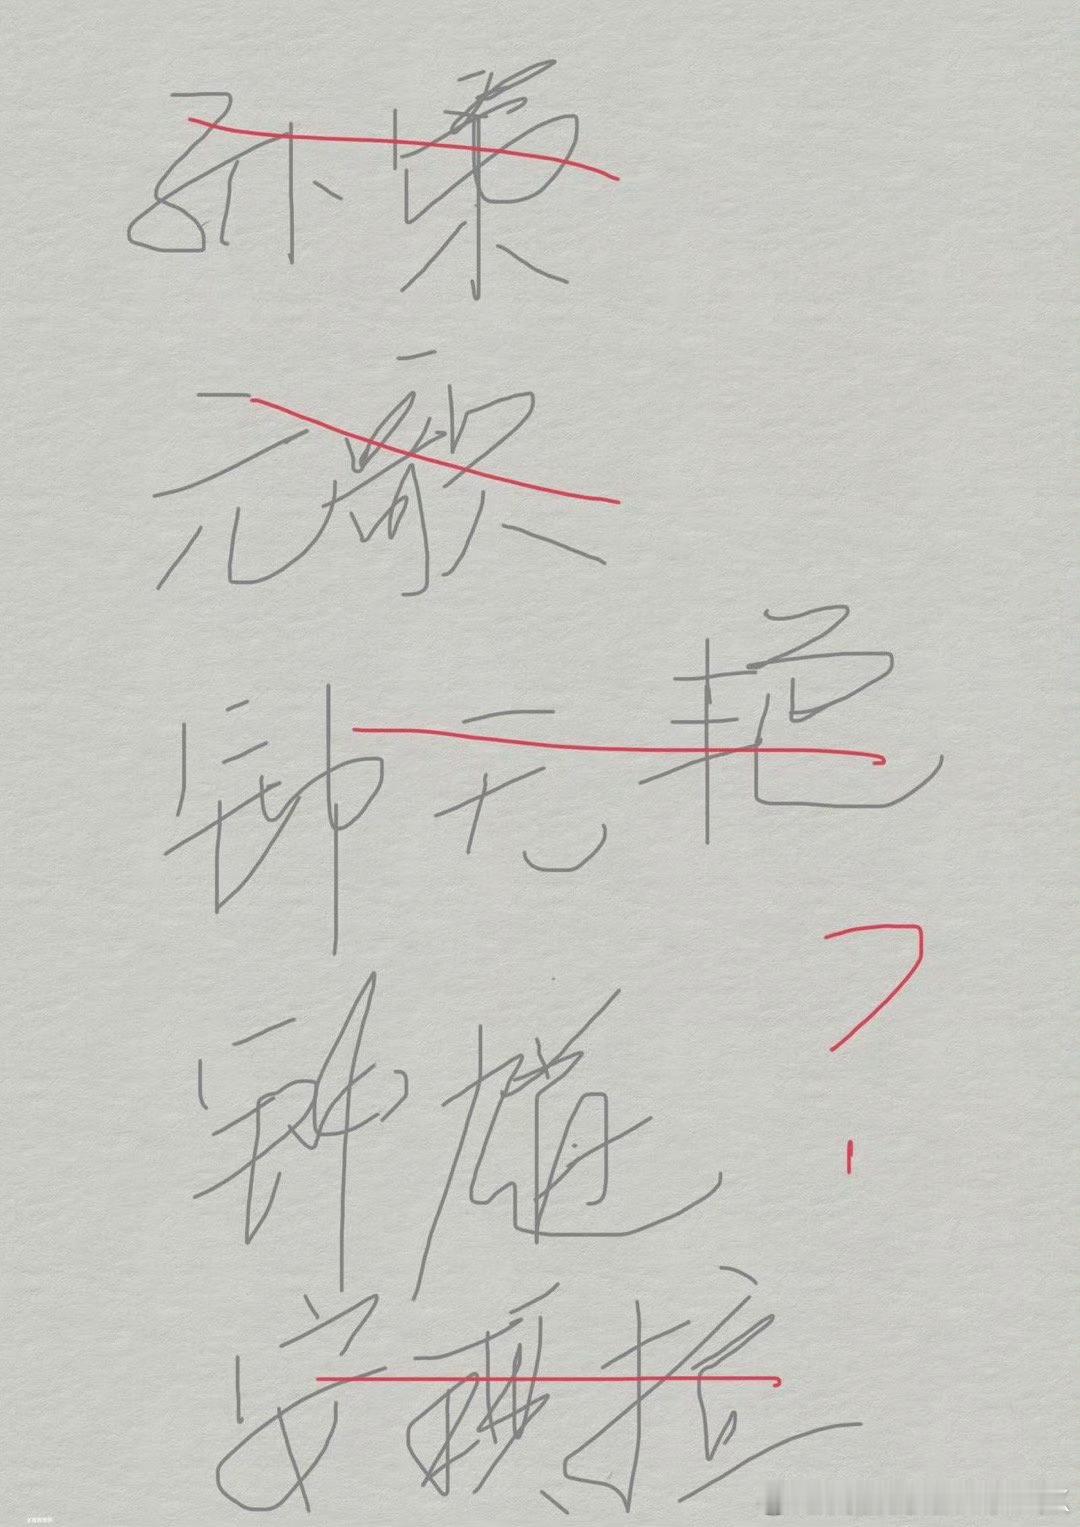 孙策
元歌
钟无艳
钟馗
?
安琪拉